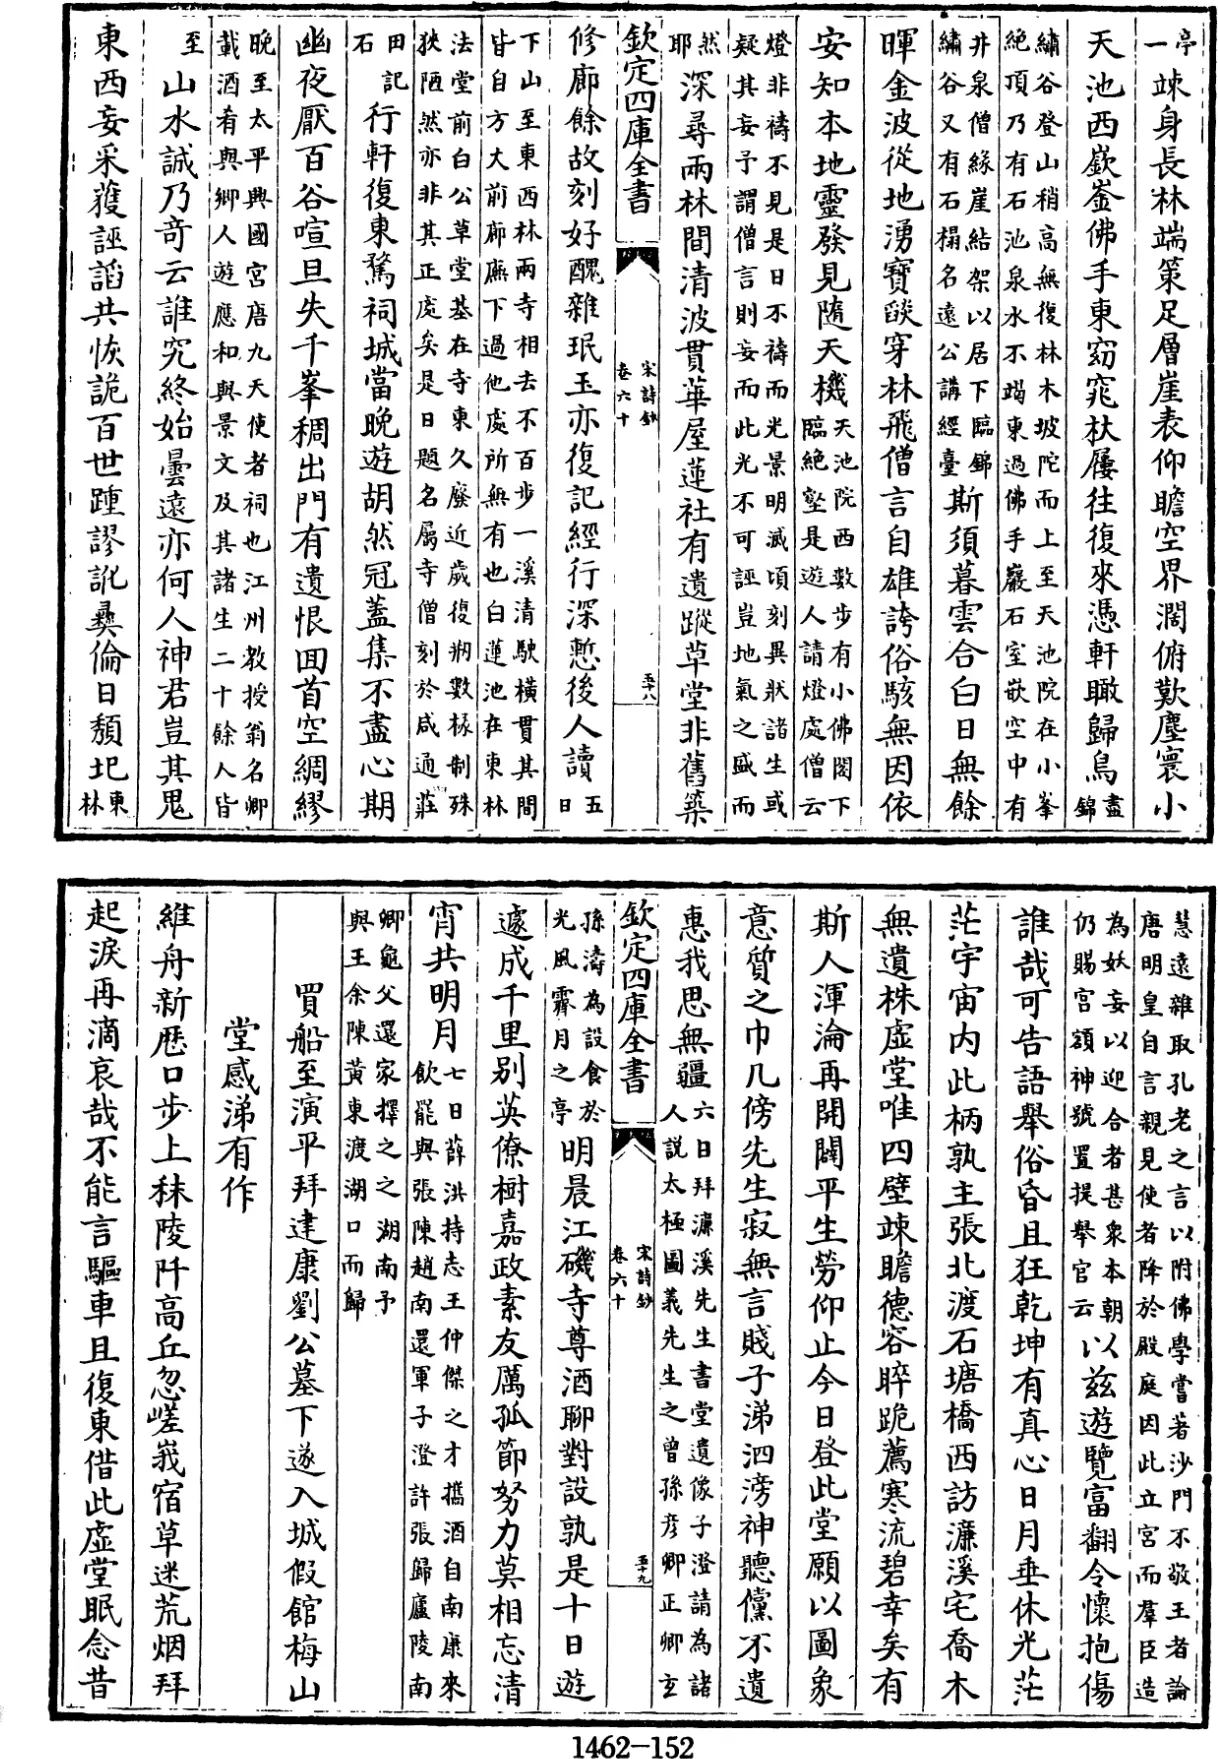 亭一竦身長林端策足層崖表仰瞻空界濶俯歎塵寰小
天池西嶔崟佛手東窈窕杖屨往復來憑軒瞰歸鳥盡錦
繡谷登山稍高無復林木坡陀而上至天池院在小峯
絶頂乃有石池泉水不竭東過佛手巖石室嵌空中有
井泉僧緣崖結架以居下臨錦繡谷又有石榻名遠公講經臺斯須暮雲合白日無餘
暉金波從地湧寶燄穿林飛僧言自雄誇俗駭無因依
安知本地靈發見隨天機天池院西數步有小佛閣下臨絶壑是遊人請燈處僧云
燈非禱不見是日不禱而光景明滅頃刻異狀諸生或
疑其妄予謂僧言則妄而此光不可誣豈地氣之盛而
然耶深尋兩林間清波貫華屋蓮社有遺蹤草堂非舊築
欽定四庫全書 宋詩鈔 卷六十 五十八
修廊餘故刻好醜雜珉玉亦復記經行深慙後人讀五日
下山至東西林兩寺相去不百步一溪清駛橫貫其間
皆自方大前廊廡下過他處所無有也白蓮池在東林
法堂前白公草堂基在寺東久廢近歲復剏數椽制殊
狹陋然亦非其正處矣是日題名屬寺僧刻於咸通莊
田石記行軒復東騖祠城當晚遊胡然冠蓋集不盡心期
幽夜厭百谷喧旦失千峯稠出門有遺恨回首空綢繆
晚至太平興國宮唐九天使者祠也江州教授翁名卿
載酒肴與鄉人遊應和與景文及其諸生二十餘人皆
至山水誠乃奇云誰究終始曇遠亦何人神君豈其鬼
東西妄采蒦誣謟共恢詭百世踵謬訛彝倫日頹圯東林
慧遠雜取孔老之言以附佛學嘗著沙門不敬王者論
唐明皇自言親見使者降於殿庭因此立宮而羣臣造
為妖妄以迎合者甚衆本朝仍賜宮額神號置提舉官云以茲遊覽富翻令懷抱傷
誰哉可告語舉俗昏且狂乾坤有真心日月垂休光茫
茫宇宙内此柄孰主張北渡石塘橋西訪濂溪宅喬木
無遺株虛堂唯四壁竦瞻德容睟跪薦寒流碧幸矣有
斯人渾淪再開闢平生勞仰止今日登此堂願以圖象
意質之巾几傍先生寂無言賤子涕泗滂神聽儻不遺
惠我思無疆六日拜濂溪先生書堂遺像子澄請為諸人説太極圖義先生之曾孫彦卿正卿玄
孫濤為設食於光風霽月之亭明晨江磯寺尊酒聊對設孰是十日遊
欽定四庫全書 宋詩鈔 卷六十 五十九
遽成千里别英僚樹嘉政素友厲孤節努力莫相忘清
宵共明月七日薛洪持志王仲傑之才攜酒自南康來飲罷與張陳趙南還軍子澄許張歸廬陵南
卿龜父還家擇之之湖南予與王余陳黄東渡湖口而歸
買船至演平拜建康劉公墓下遂入城假館梅山
堂感涕有作
維舟新歴口步上秣陵阡高丘忽嵯峩宿草迷荒烟拜
起淚再滴哀哉不能言驅車且復東借此虛堂眠念昔
1462—152